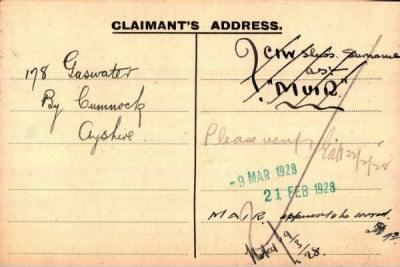 CLAIMANT'S ADDRESS.
178 Gaswater
By Cumnock
Ayshire.
CIW shws. surname
as:-
"MUIR."
Please verify
22/2/28
-9 MAR 1928
21 FEB 1928
MAIR. appears to be correct.
9/3/28.